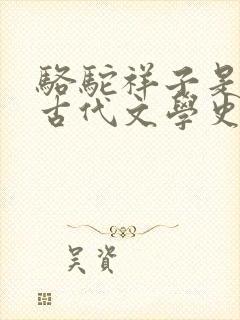 駱駝祥子是
古代文學史
吴資